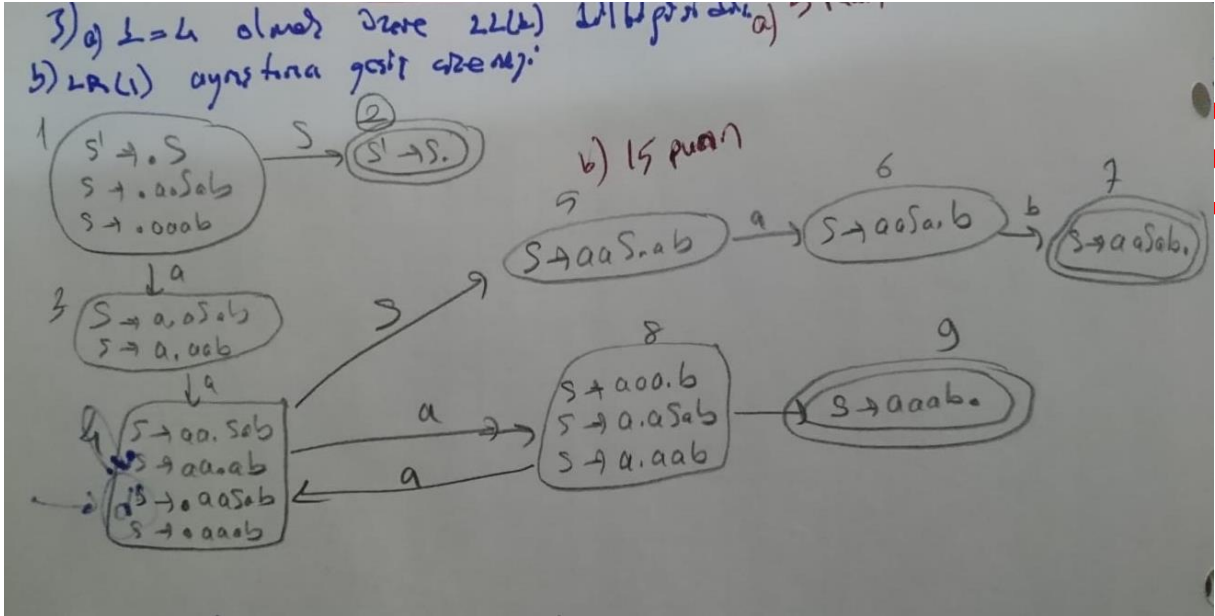 3) a) k=4 olmak üzere LL(k) dilbilgisidir. a)
b) LR(1) ayrıştırma geçiş çizeneği
b) 15 puan
1
S' → .S
S → .aaSab
S → .aaab
S
2
S' → S.
a
3
S → a.aSab
S → a.aab
a
4
S → aa.Sab
S → aa.ab
S → .aaSab
S → .aaab
S
5
S → aaS.ab
a
6
S → aaSa.b
b
7
S → aaSab.
a
a
8
S → aaa.b
S → a.aSab
S → a.aab
9
S → aaab.